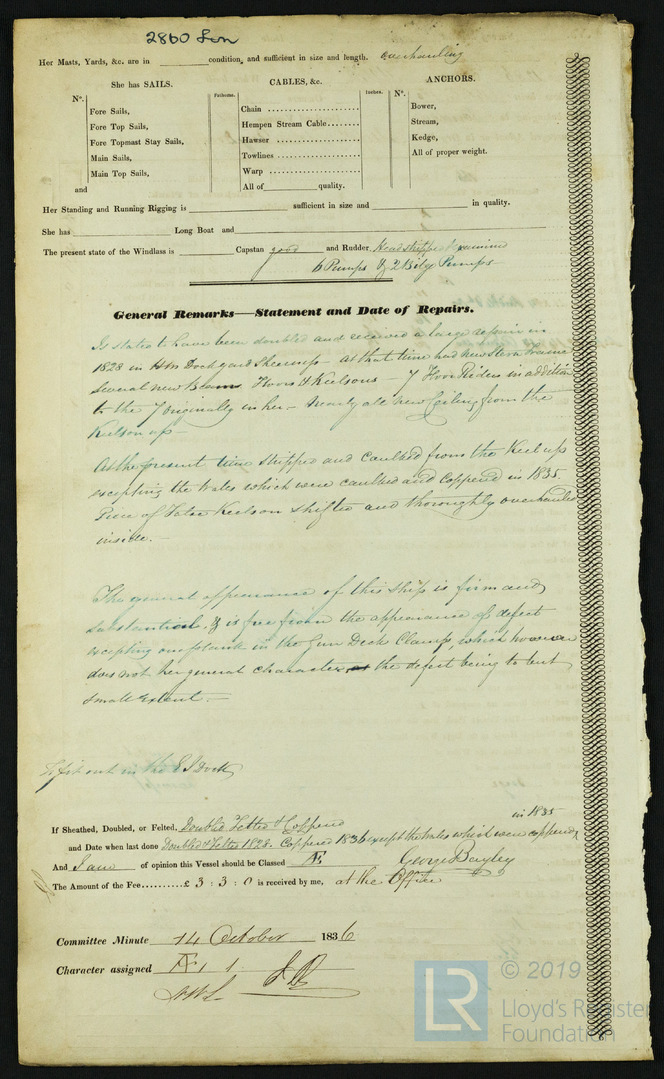 2860 Lon
Her Masts, Yards, &c. are in condition, and sufficient in size and length. overhauling
She has SAILS. CABLES, &c. ANCHORS.
No. Fathoms. Inches. No.
Fore Sails, Chain Bower,
Fore Top Sails, Hempen Stream Cable Stream,
Fore Topmast Stay Sails, Hawser Kedge,
Main Sails, Towlines All of proper weight.
Main Top Sails, Warp
and All of quality.
Her Standing and Running Rigging is sufficient in size and in quality.
She has Long Boat and
The present state of the Windlass is Capstan good and Rudder Head stripped & examined
6 Pumps & 2 Bilge Pumps
General Remarks—Statement and Date of Repairs.
Is stated to have been doubled and received a large repair in
1828 in HM Dockyard Sheerness – at that time had new Stern Frame
Several new Beams Floors & Keelsons – 7 Floor Riders in addition
to the 7 originally in her – nearly all new Ceiling from the
Keelson up –
At the present time stripped and caulked from the Keel up
excepting the Wales which were caulked and Coppered in 1835
Piece of False Keelson shifted and thoroughly overhauled
inside. –
The general appearance of this ship is firm and
substantial, & is free from the appearance of defect
excepting one plank in the Gun Deck Clamp, which however
does not her general character, the defect being to but
small extent –
in the Dock
If Sheathed, Doubled, or Felted, Doubled Felted & Coppered
in 1835
and Date when last done Doubled & Felted 1828. Coppered 1836 except the Wales which were coppered
And I am of opinion this Vessel should be Classed Æ George Bayley
The Amount of the Fee..........£ 3 : 3 : 0 is received by me, at the Office
Committee Minute 14 October 1836
Character assigned Æ 1
LR © 2019
Lloyd's Register
Foundation